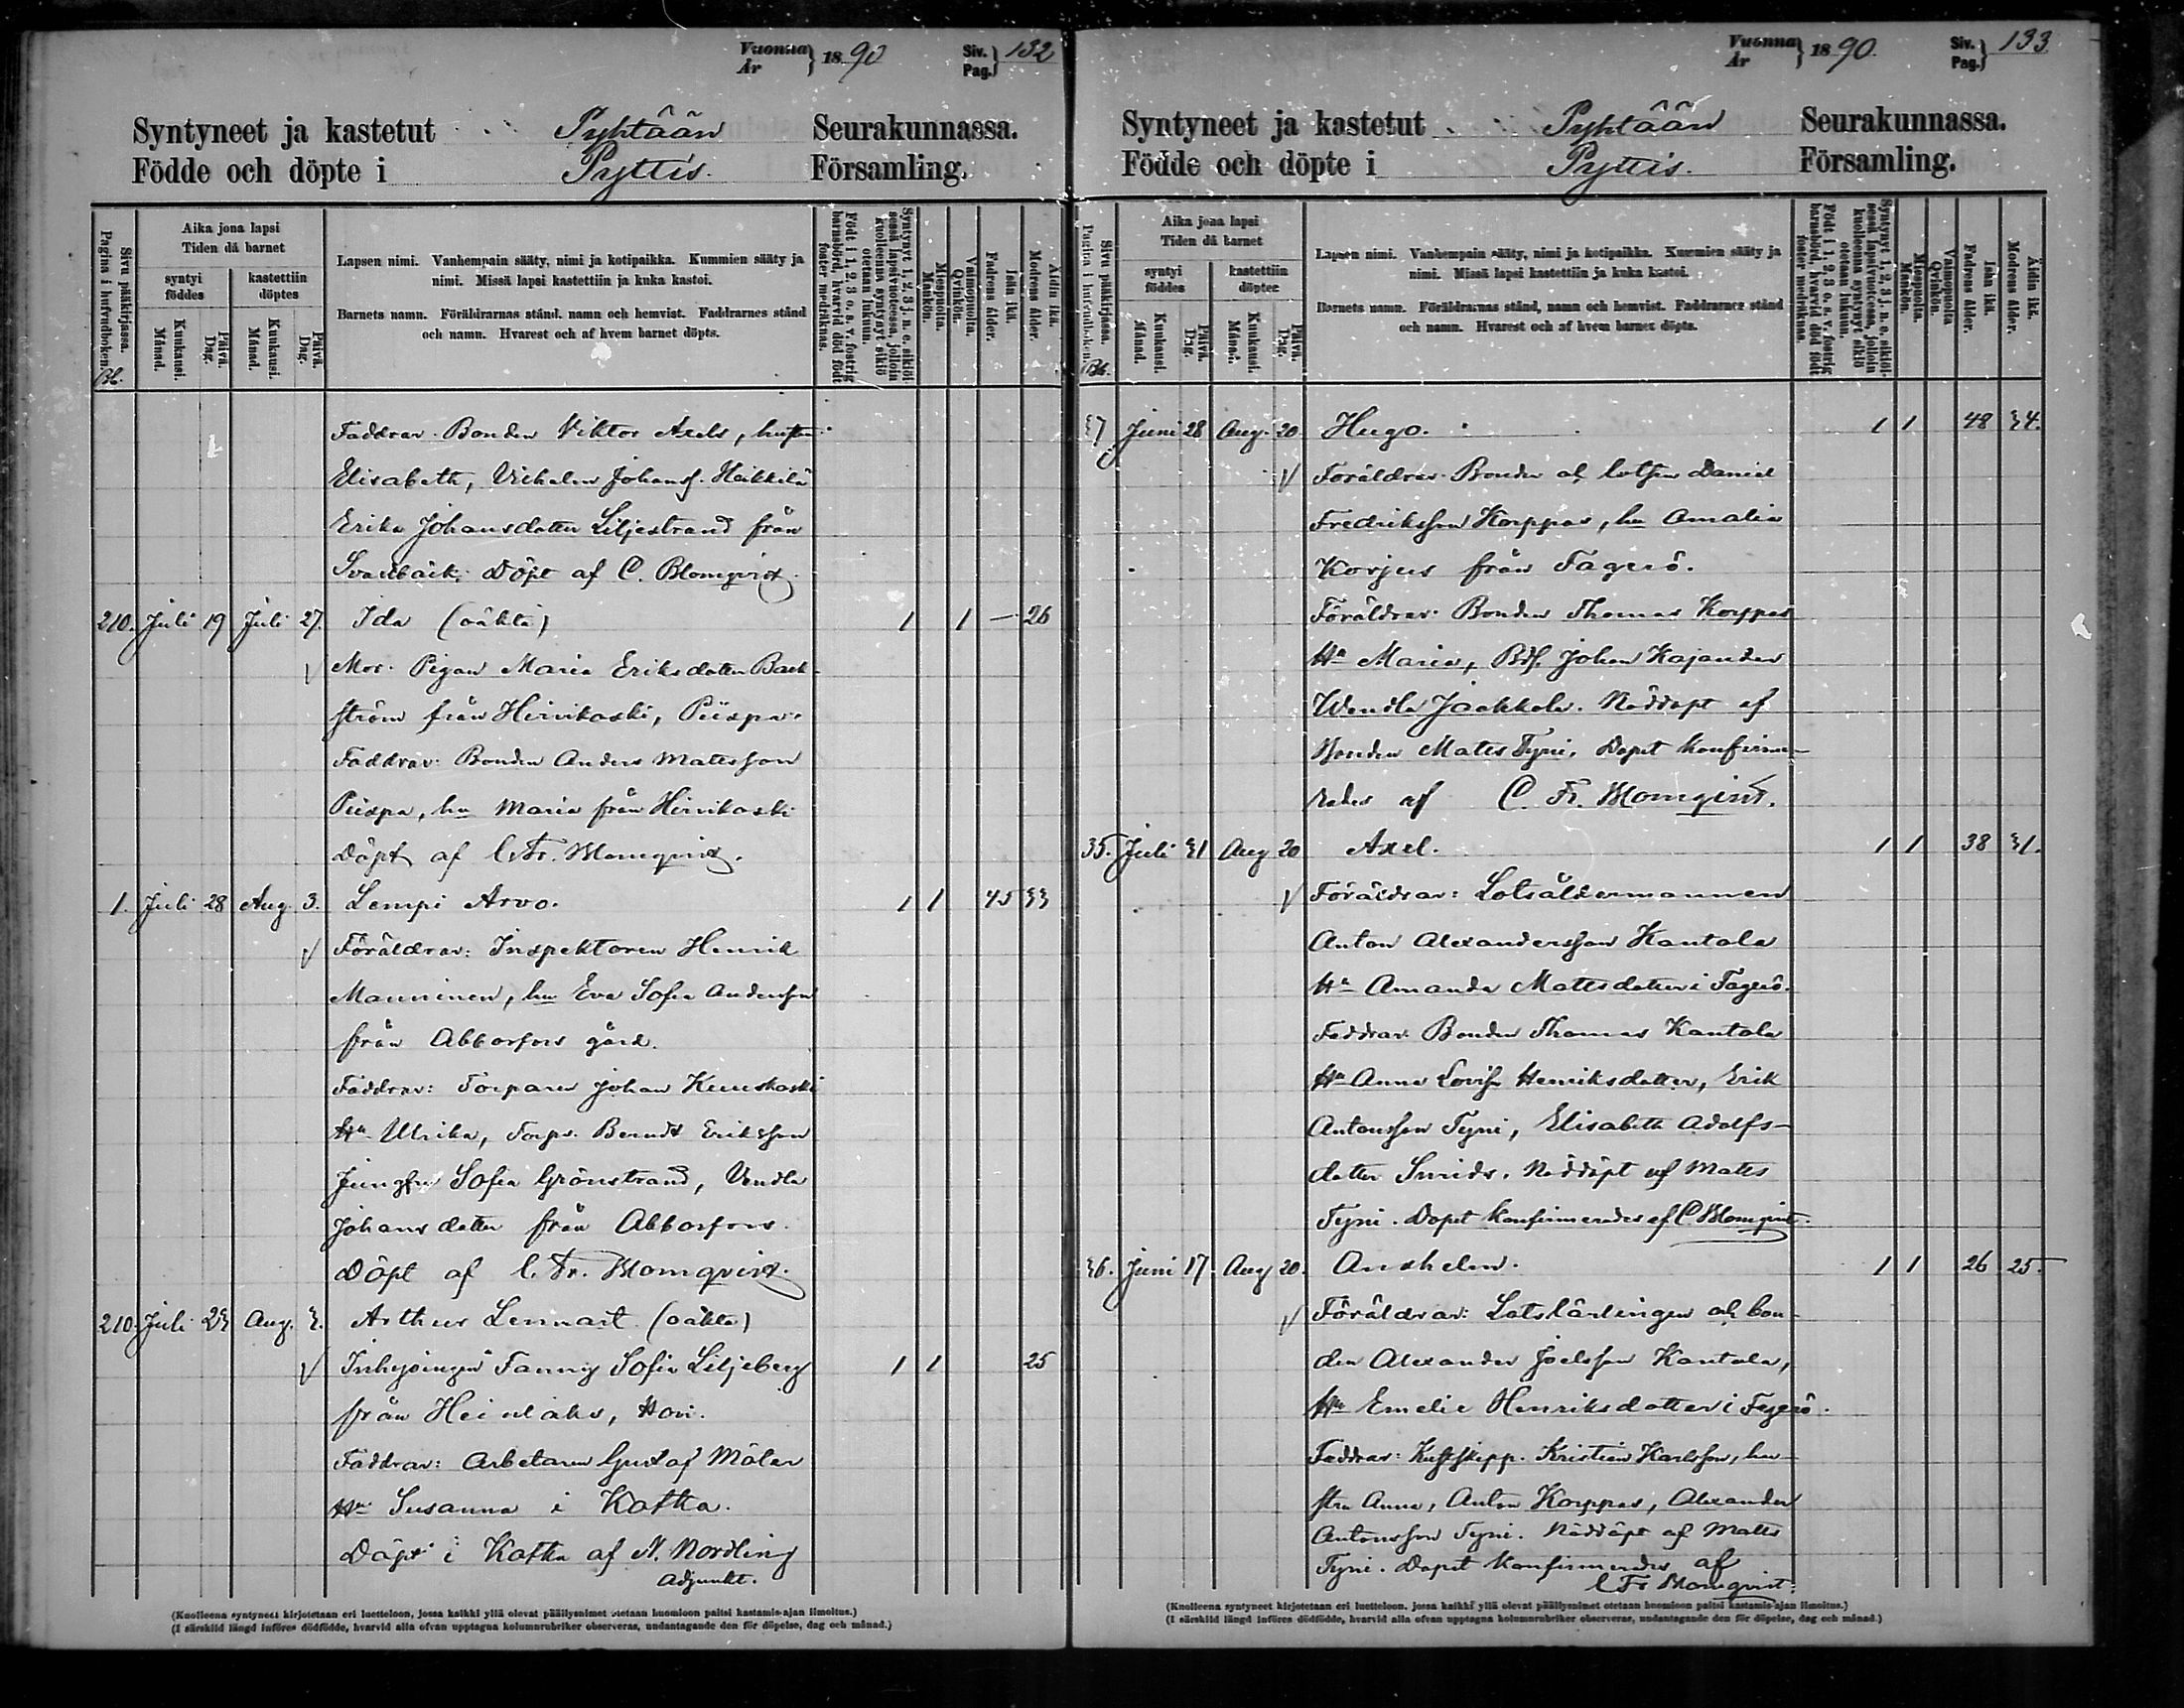 Vuonna
År } 1890 Siv.
Pag. } 132
Syntyneet ja kastetut Pyhtään Seurakunnassa.
Födde och döpte i Pyttis. Församling.
Sivu pääkirjassa.
Pagina i hufvudboken.
Bb.
Aika jona lapsi
Tiden då barnet
syntyi
föddes
kastettiin
döptes
Kuukausi.
Månad.
Päivä.
Dag.
Kuukausi.
Månad.
Päivä.
Dag.
Lapsen nimi. Vanhempain sääty, nimi ja kotipaikka. Kummien sääty ja
nimi. Missä lapsi kastettiin ja kuka kastoi.
Barnets namn. Föräldrarnas stånd, namn och hemvist. Faddrarnes stånd
och namn. Hvarest och af hvem barnet döpts.
Syntynyt 1, 2, 3 j. n. e. sikiöi-
sessä lapsivuoteessa, jolloin
kuolleena syntynyt sikiö
otetaan lukuun.
Född i 1, 2, 3 o. s. v. fostrig
barnsbörd, hvarvid död född
foster medräknas.
Miespuolta.
Mankön.
Vaimopuolta.
Qvinkön.
Isän ikä.
Fadrens ålder.
Äidin ikä.
Modrens ålder.
Faddrar: Bonden Viktor Axels, hustru
Elisabeth, Vilhelm Johanss. Heikkilä
Erika Johansdotter Liljestrand från
Svartbäck. Döpt af C. Blomqvist.
210. Juli 19 Juli 27. Ida (oäkta) 1 1 — 26
Mor: Pigan Maria Eriksdotter Back-
ström från Hirvikoski, Piispa.
Faddrar: Bonden Anders Mattsson
Piispa, hu Maria från Hirvikoski
Döpt af C. Fr. Blomqvist.
1. Juli 28 Aug. 3. Lempi Arvo. 1 1 45 33
Föräldrar: Inspektoren Henrik
Manninen, hu Eva Sofia Andersson
från Abborfors gård.
Faddrar: Torparen Johan Kuuskoski
Hu Ulrika, Torp. Berndt Eriksson
Jungfru Sofia Grönstrand, Vendla
Johansdotter från Abborfors.
Döpt af C. Fr. Blomqvist.
210. Juli 23 Aug. 3. Arthur Lennart (oäkta)
Inhysingen Fanny Sofia Liljeberg 1 1 25
från Heinlaks,
Faddrar: Arbetaren Gustaf Mälar
Hu Susanna i Kotka.
Döpt i Kotka af N. Nordling
Adjunkt.
(Kuolleena syntyneet kirjotetaan eri luetteloon, jossa kaikki yllä olevat päällysnimet otetaan huomioon paitsi kastamis-ajan ilmoitus.)
(I särskild längd införes dödfödde, hvarvid alla ofvan upptagna kolumnrubriker observeras, undantagande den för döpelse, dag och månad.)
Vuonna
År } 1890. Siv.
Pag. } 133
Syntyneet ja kastetut Pyhtään Seurakunnassa.
Födde och döpte i Pyttis. Församling.
Sivu pääkirjassa.
Pagina i hufvudboken.
Bb.
Aika jona lapsi
Tiden då barnet
syntyi
föddes
kastettiin
döptes
Kuukausi.
Månad.
Päivä.
Dag.
Kuukausi.
Månad.
Päivä.
Dag.
Lapsen nimi. Vanhempain sääty, nimi ja kotipaikka. Kummien sääty ja
nimi. Missä lapsi kastettiin ja kuka kastoi.
Barnets namn. Föräldrarnas stånd, namn och hemvist. Faddrarnes stånd
och namn. Hvarest och af hvem barnet döpts.
Syntynyt 1, 2, 3 j. n. e. sikiöi-
sessä lapsivuoteessa, jolloin
kuolleena syntynyt sikiö
otetaan lukuun.
Född i 1, 2, 3 o. s. v. fostrig
barnsbörd, hvarvid död född
foster medräknas.
Miespuolta.
Mankön.
Vaimopuolta
Qvinkön.
Isän ikä.
Fadrens ålder.
Äidin ikä.
Modrens ålder.
37 Juni 28 Aug. 20 Hugo. 1 1 48 34.
Föräldrar: Bonden och lotsen Daniel
Fredriksson Korppas, hu Amalia
Korjus från Fagerö.
Föräldrar: Bonden Thomas Korppas
Hu Maria, Bds. Johan Kajander
Wendla Jaakkola. Nöddöpt af
Bonden Matts Tyni. Dopet konfirme-
rades af C. Fr. Blomqvist.
35. Juli 31 Aug 20 Axel. 1 1 38 31.
Föräldrar: Lotsåldermannen
Anton Alexandersson Kantola
Hu Amanda Mattsdotter i Fagerö.
Faddrar: Bonden Thomas Kantola
Hu Anna Lovisa Henriksdotter, Erik
Antonsson Tyni, Elisabeth Adolfs-
dotter Smids. Nöddöpt af Matts
Tyni. Dopet konfirmerades af C Blomqvist.
36. Juni 17. Aug 20. Anshelm. 1 1 26 25.
Föräldrar: Lotslärlingen och bon-
den Alexander Joelsson Kantola,
Hu Emelie Henriksdotter i Fagerö.
Faddrar: Kustskepp. Kristian Karlsson, hu-
stru Anna, Anton Korppas, Alexander
Antonsson Tyni. Nöddöpt af Matts
Tyni. Dopet konfirmerades af
C Fr Blomqvist.
(Kuolleena syntyneet kirjotetaan eri luetteloon, jossa kaikki yllä olevat päällysnimet otetaan huomioon paitsi kastamis-ajan ilmoitus.)
(I särskild längd införes dödfödde, hvarvid alla ofvan upptagna kolumnrubriker observeras, undantagande den för döpelse, dag och månad.)